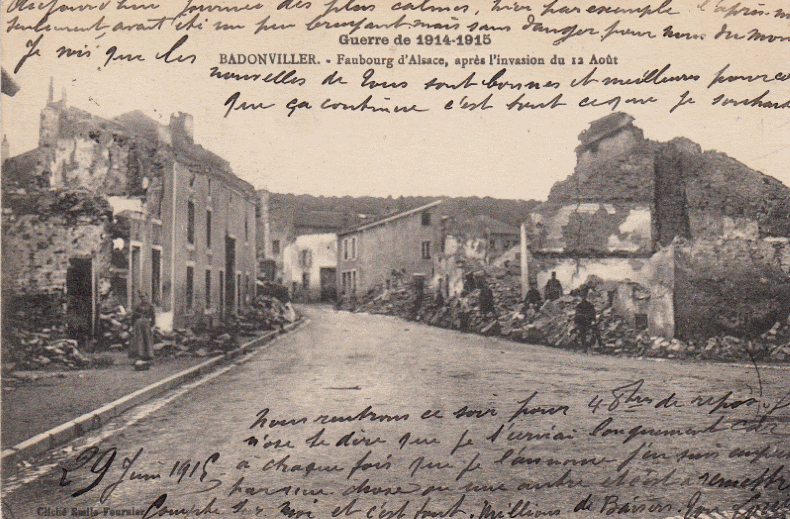 Aujourd'hui journée des plus calmes, hier par exemple l'après-m
seulement, avait été un peu bruyant mais sans danger pour nous du mo
Guerre de 1914-1915
BADONVILLER. - Faubourg d'Alsace, après l'invasion du 12 Août
Je vois que les
nouvelles de Vous sont bonnes et meilleures pourvu
que ça continue c'est tout ce que je souhaite
Nous rentrons ce soir pour 48 hrs de repos. J
n'ose te dire que je t'écrirai longuement car
à chaque fois que je l'annonce j'en suis empê
par une chose ou une autre et c'est à remettre
29 Juin 1915
Compte sur moi et c'est tout. Millions de Baisers.
Cliché Emile Fournier